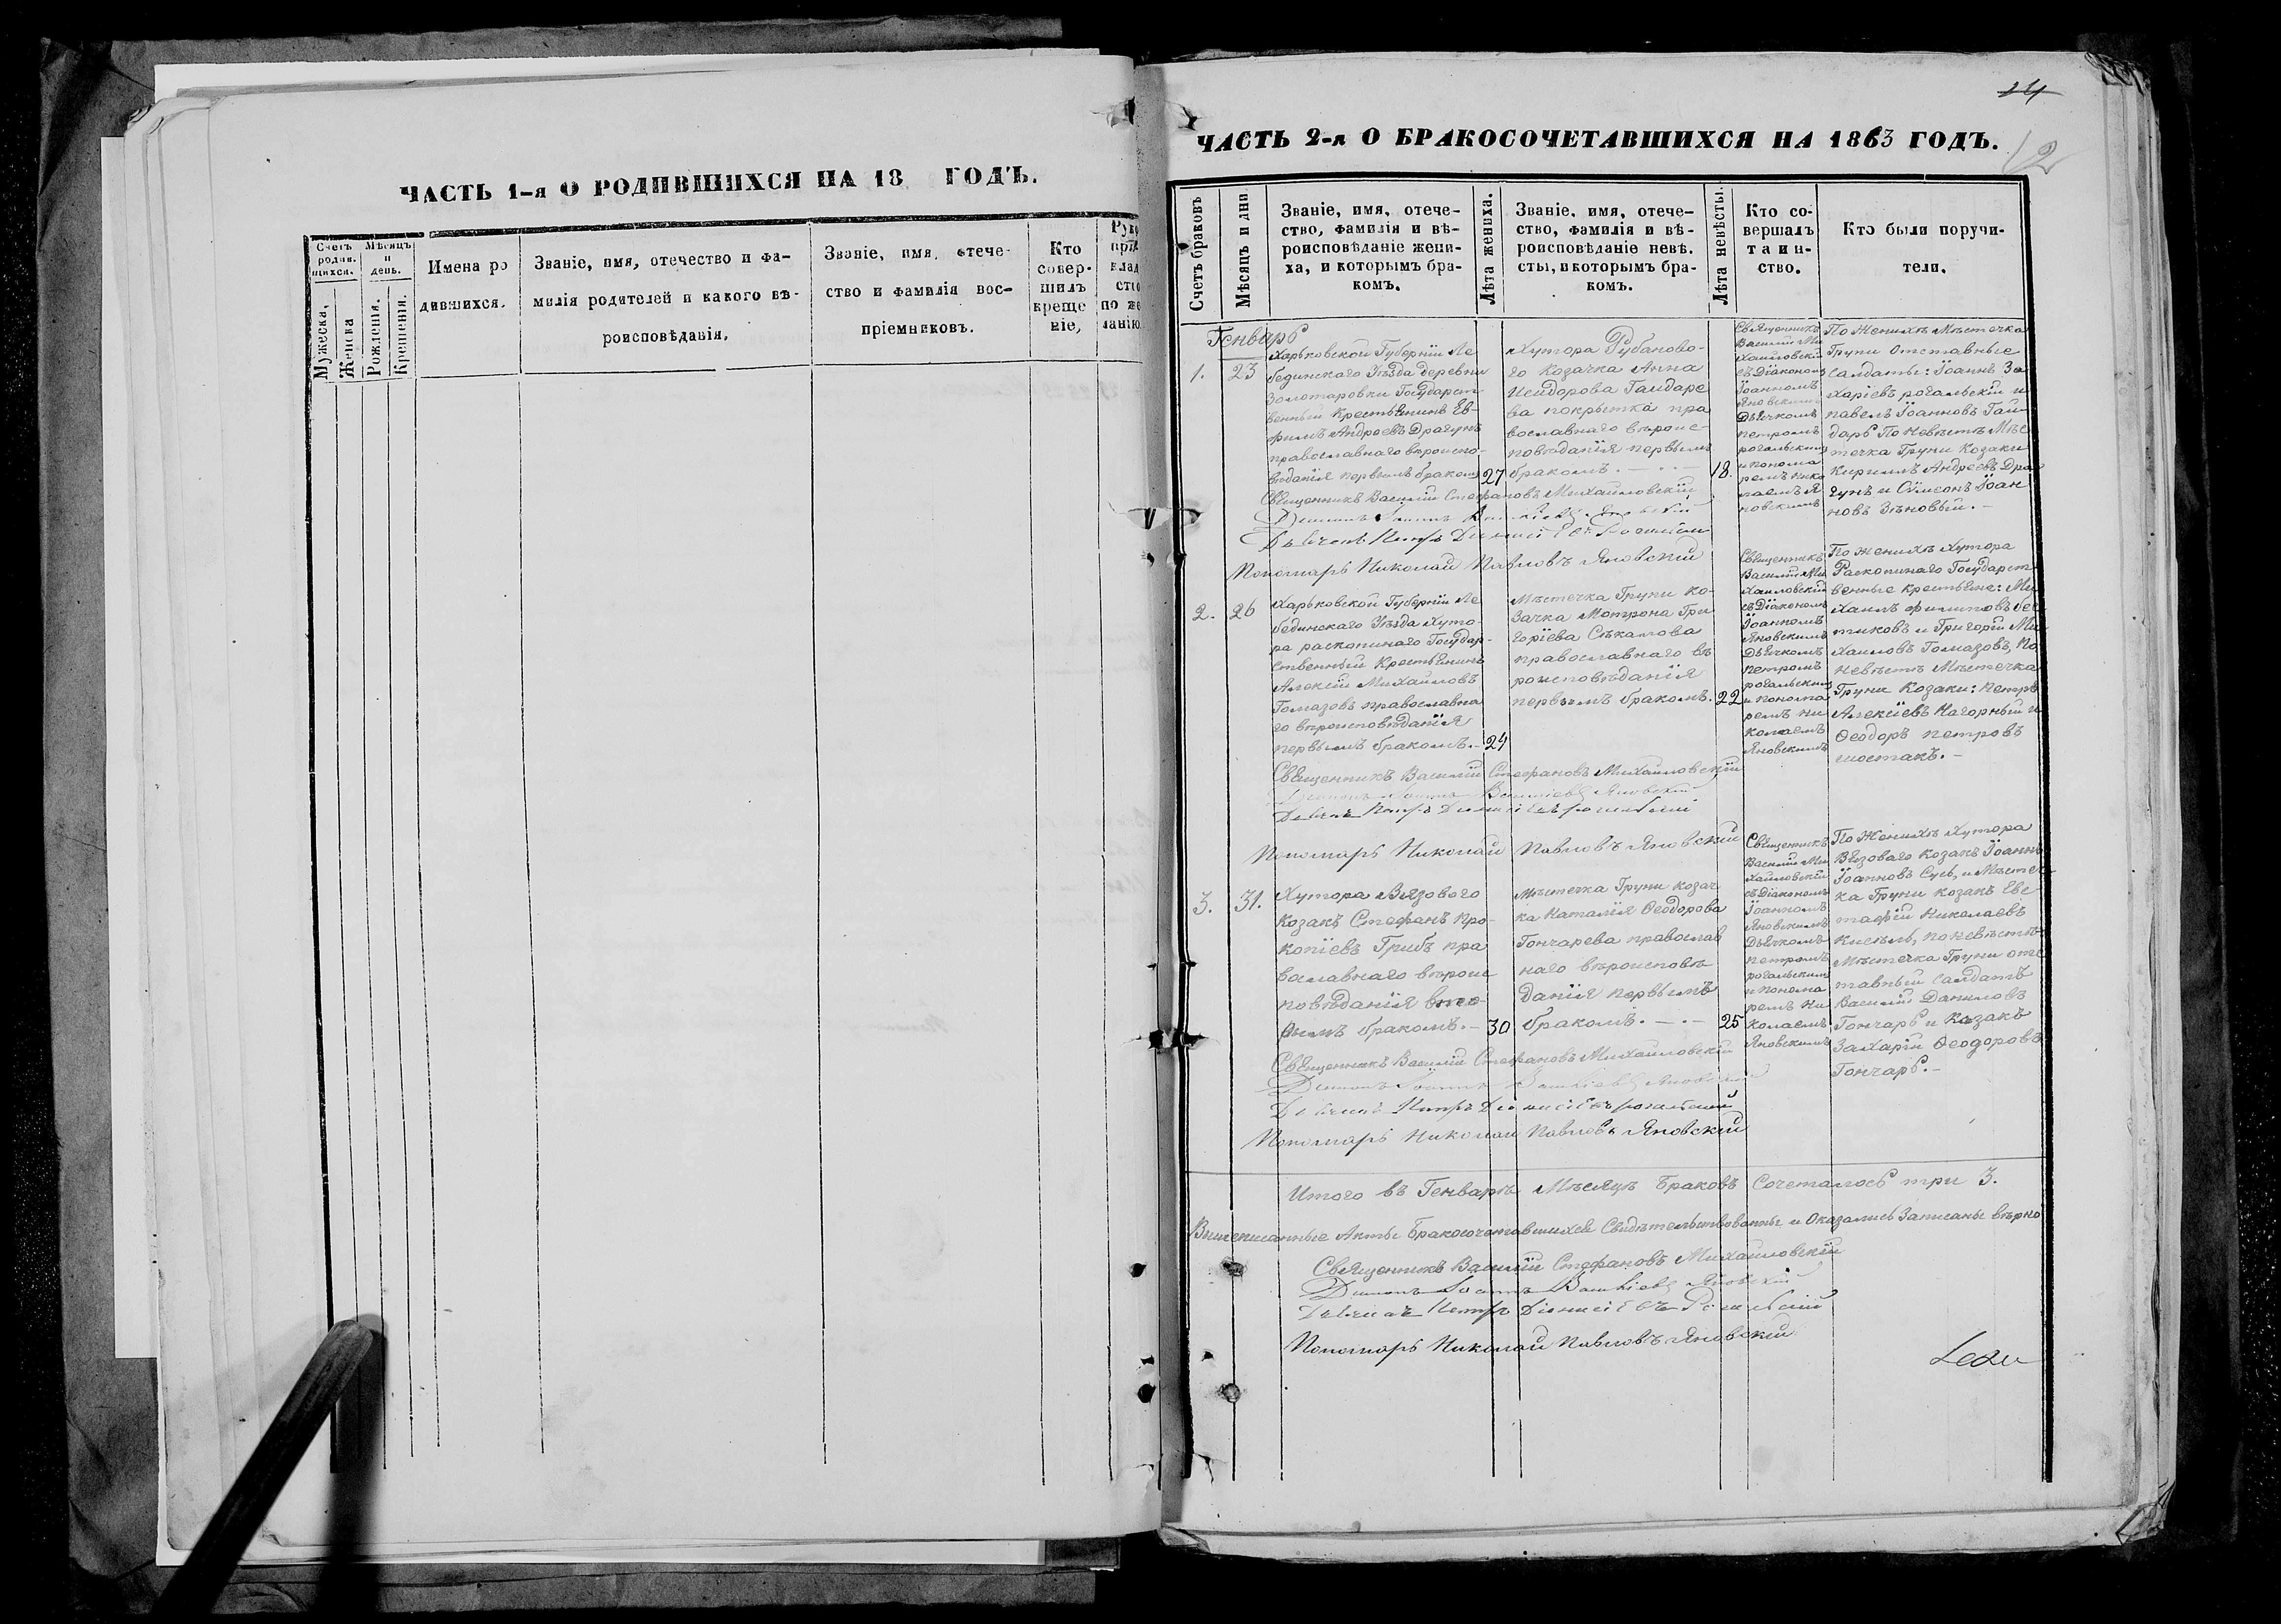 ЧАСТЬ 1-я О РОДИВШИХСЯ НА 18 ГОДЪ.
Счетъ родив.шихся.
Мужеска,
Женска
Мѣсяцъ и день.
Рожденія.
Крещенія.
Имена родившихся.
Званіе, имя, отечество и фа-
милія родителей и какого вѣ-
роисповѣданія.
Званіе, имя, отече-
ство и фамилія вос-
пріемниковъ.
Кто
совер-
шилъ
креще
ніе,
24
ЧАСТЬ 2-я О БРАКОСОЧЕТАВШИХСЯ НА 1863 ГОДЪ.
12
Счетъ браковъ
Мѣсяцъ и дни
Званіе, имя, отече-
ство, фамилія и вѣ-
роисповѣданіе жени-
ха, и которымъ бра-
комъ.
Лѣта жениха.
Званіе, имя, отече-
ство, фамилія и вѣ-
роисповѣданіе невѣ.
сты, и которымъ бра-
комъ.
Лѣта невѣсты.
Кто со-
вершалъ
таин-
ство.
Кто были поручи-
тели.
Генварь
1.
23
Харьковской Губерніи Ле
бединскаго Уѣзда деревни
Золотаровки Государст-
венный Крестьянинъ Ев-
фимъ Андреевъ Драгунъ
православнаго вѣроиспо-
вѣданія первымъ бракомъ
27
Хутора Рубаново-
го козачка Анна
Исидорова Гандаре
ва покрытка пра
вославнаго вѣроис-
повѣданія первымъ
бракомъ. —
18.
Священникъ
Василій Ми
хайловскій
съ Діакономъ
Іоанномъ
Яновскимъ
Дьячкомъ
Петромъ
рогальскимъ
и понома
ремъ Нико
лаемъ Я
новскимъ
По Женихѣ Мѣстечка
Груни Отставные
салдаты: Іоаннъ За
харіевъ рогальскій и
павелъ Іоанновъ Ган
дарь По Невѣстѣ Мѣс
течка Груни Козаки
Кириллъ Андреевъ Дра
гунъ и Сѵмеонъ Іоан
новъ Зѣновый. —
Священникъ Василій Стефановъ Михайловскій
Діаконъ Іоаннъ Яновскій
Дьячекъ Петръ
Пономарь Николай Павловъ Яновскій
2.
26
Харьковской Губерніи Ле
бединскаго Уѣзда Хуто-
ра раскопинаго Государ-
ственный Крестьянинъ
Алексій Михайловъ
Гомазовъ православна
го вѣроисповѣданія
первымъ бракомъ. —
24
Мѣстечка Груни Ко-
зачка Мотрона Гри
горіева Сѣкатова
православнаго вѣ
роисповѣданія
первымъ бракомъ.
22
Священникъ
Василій Ми
хайловскій
съ Діакономъ
Іоанномъ
Яновскимъ
Дьячкомъ
Петромъ
рогальскимъ
и понома
ремъ Ни
колаемъ
Яновскимъ
По Женихѣ Хутора
Раскопинаго Государст
венные крестьяне: Ми
хаилъ Филиповъ
и Григорій Ми
хаиловъ Гомазовъ, По
Невѣстѣ Мѣстечка
Груни Козаки: Петръ
Алексіевъ Нагорный и
Ѳеодоръ Петровъ
шостакъ. —
Священникъ Василій Стефановъ Михайловскій
Діаконъ Іоаннъ Яновскій
Дьячекъ Петръ
Пономарь Николай Павловъ Яновскій
3.
31.
Хутора Вязового
Козакъ Стефанъ Про-
копіевъ Грибъ пра
вославнаго вѣроис
повѣданія вто-
рымъ бракомъ. —
30
Мѣстечка Груни козач
ка Наталія Ѳеодорова
Гончарева православ
наго вѣроисповѣ
данія первымъ
бракомъ. —
25
Священникъ
Василій Ми
хайловскій
съ Діакономъ
Іоанномъ
Яновскимъ
Дьячкомъ
Петромъ
рогальскимъ
и понома
ремъ Ни
колаемъ
Яновскимъ
По Женихѣ Хутора
Вязоваго Козакъ Іоаннъ
Іоанновъ Сусь, и Мѣстеч
ка Груни козакъ Евс
тафій Николаевъ
Кисѣль, по невѣстѣ
Мѣстечка Груни отс
тавный салдатъ
Василій Даниловъ
Гончарь и Козакъ
Захарій Ѳеодоровъ
Гончарь. —
Священникъ Василій Стефановъ Михайловскій
Діаконъ Іоаннъ Яновскій
Дьячекъ Петръ рогальскій
Пономарь Николай Павловъ Яновскій
Итого въ Генварѣ Мѣсяцѣ Браковъ Сочеталось три 3.
Вышеписанные Акты Бракосочетавшихся Свидѣтельствованны и Оказались Записаны вѣрно
Священникъ Василій Стефановъ Михайловскій
Діаконъ Іоаннъ Яновскій
Дьячекъ Петръ
Пономарь Николай Павловъ Яновскій